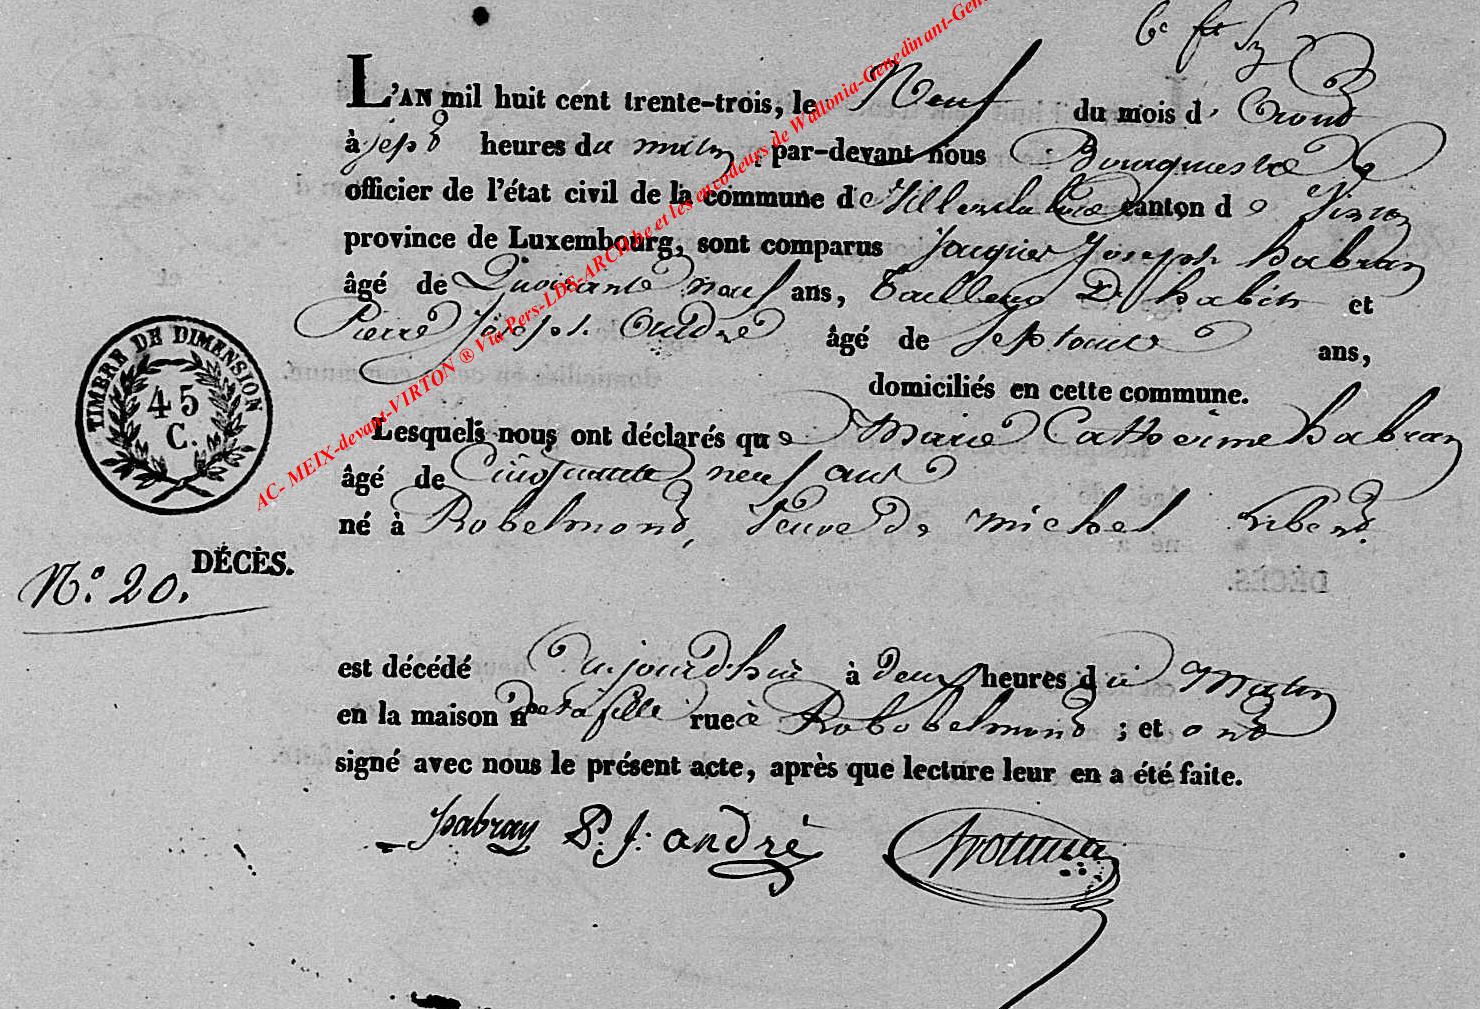 L'AN mil huit cent trente-trois, le Neuf du mois d' Aout
à sept heures du matin, par-devant nous Bourguestre
officier de l'état civil de la commune de Villers la loue canton de Virton
province de Luxembourg, sont comparus Jacques Joseph habran
âgé de Quarante neuf ans, tailleur D'habits et
Pierre Joseph André âgé de Septante ans,
domiciliés en cette commune.
Lesquels nous ont déclarés que Marie Catherine habran
âgé de Cinquante neuf ans
né à Robelmond, Veuve de michel
DÉCÈS.
N.º 20.
est décédé aujourd'hui à deux heures du Matin
en la maison n de sa fille rue à Robobelmond ; et ond
signé avec nous le présent acte, après que lecture leur en a été faite.
habran P. J. andré
TIMBRE DE DIMENSION
45
C.
AC- MEIX-devant-VIRTON ® Via Pers-LDS-ARCH.be et les encodeurs de Wallonia-Genedinant-Gen
DÉCÈS.